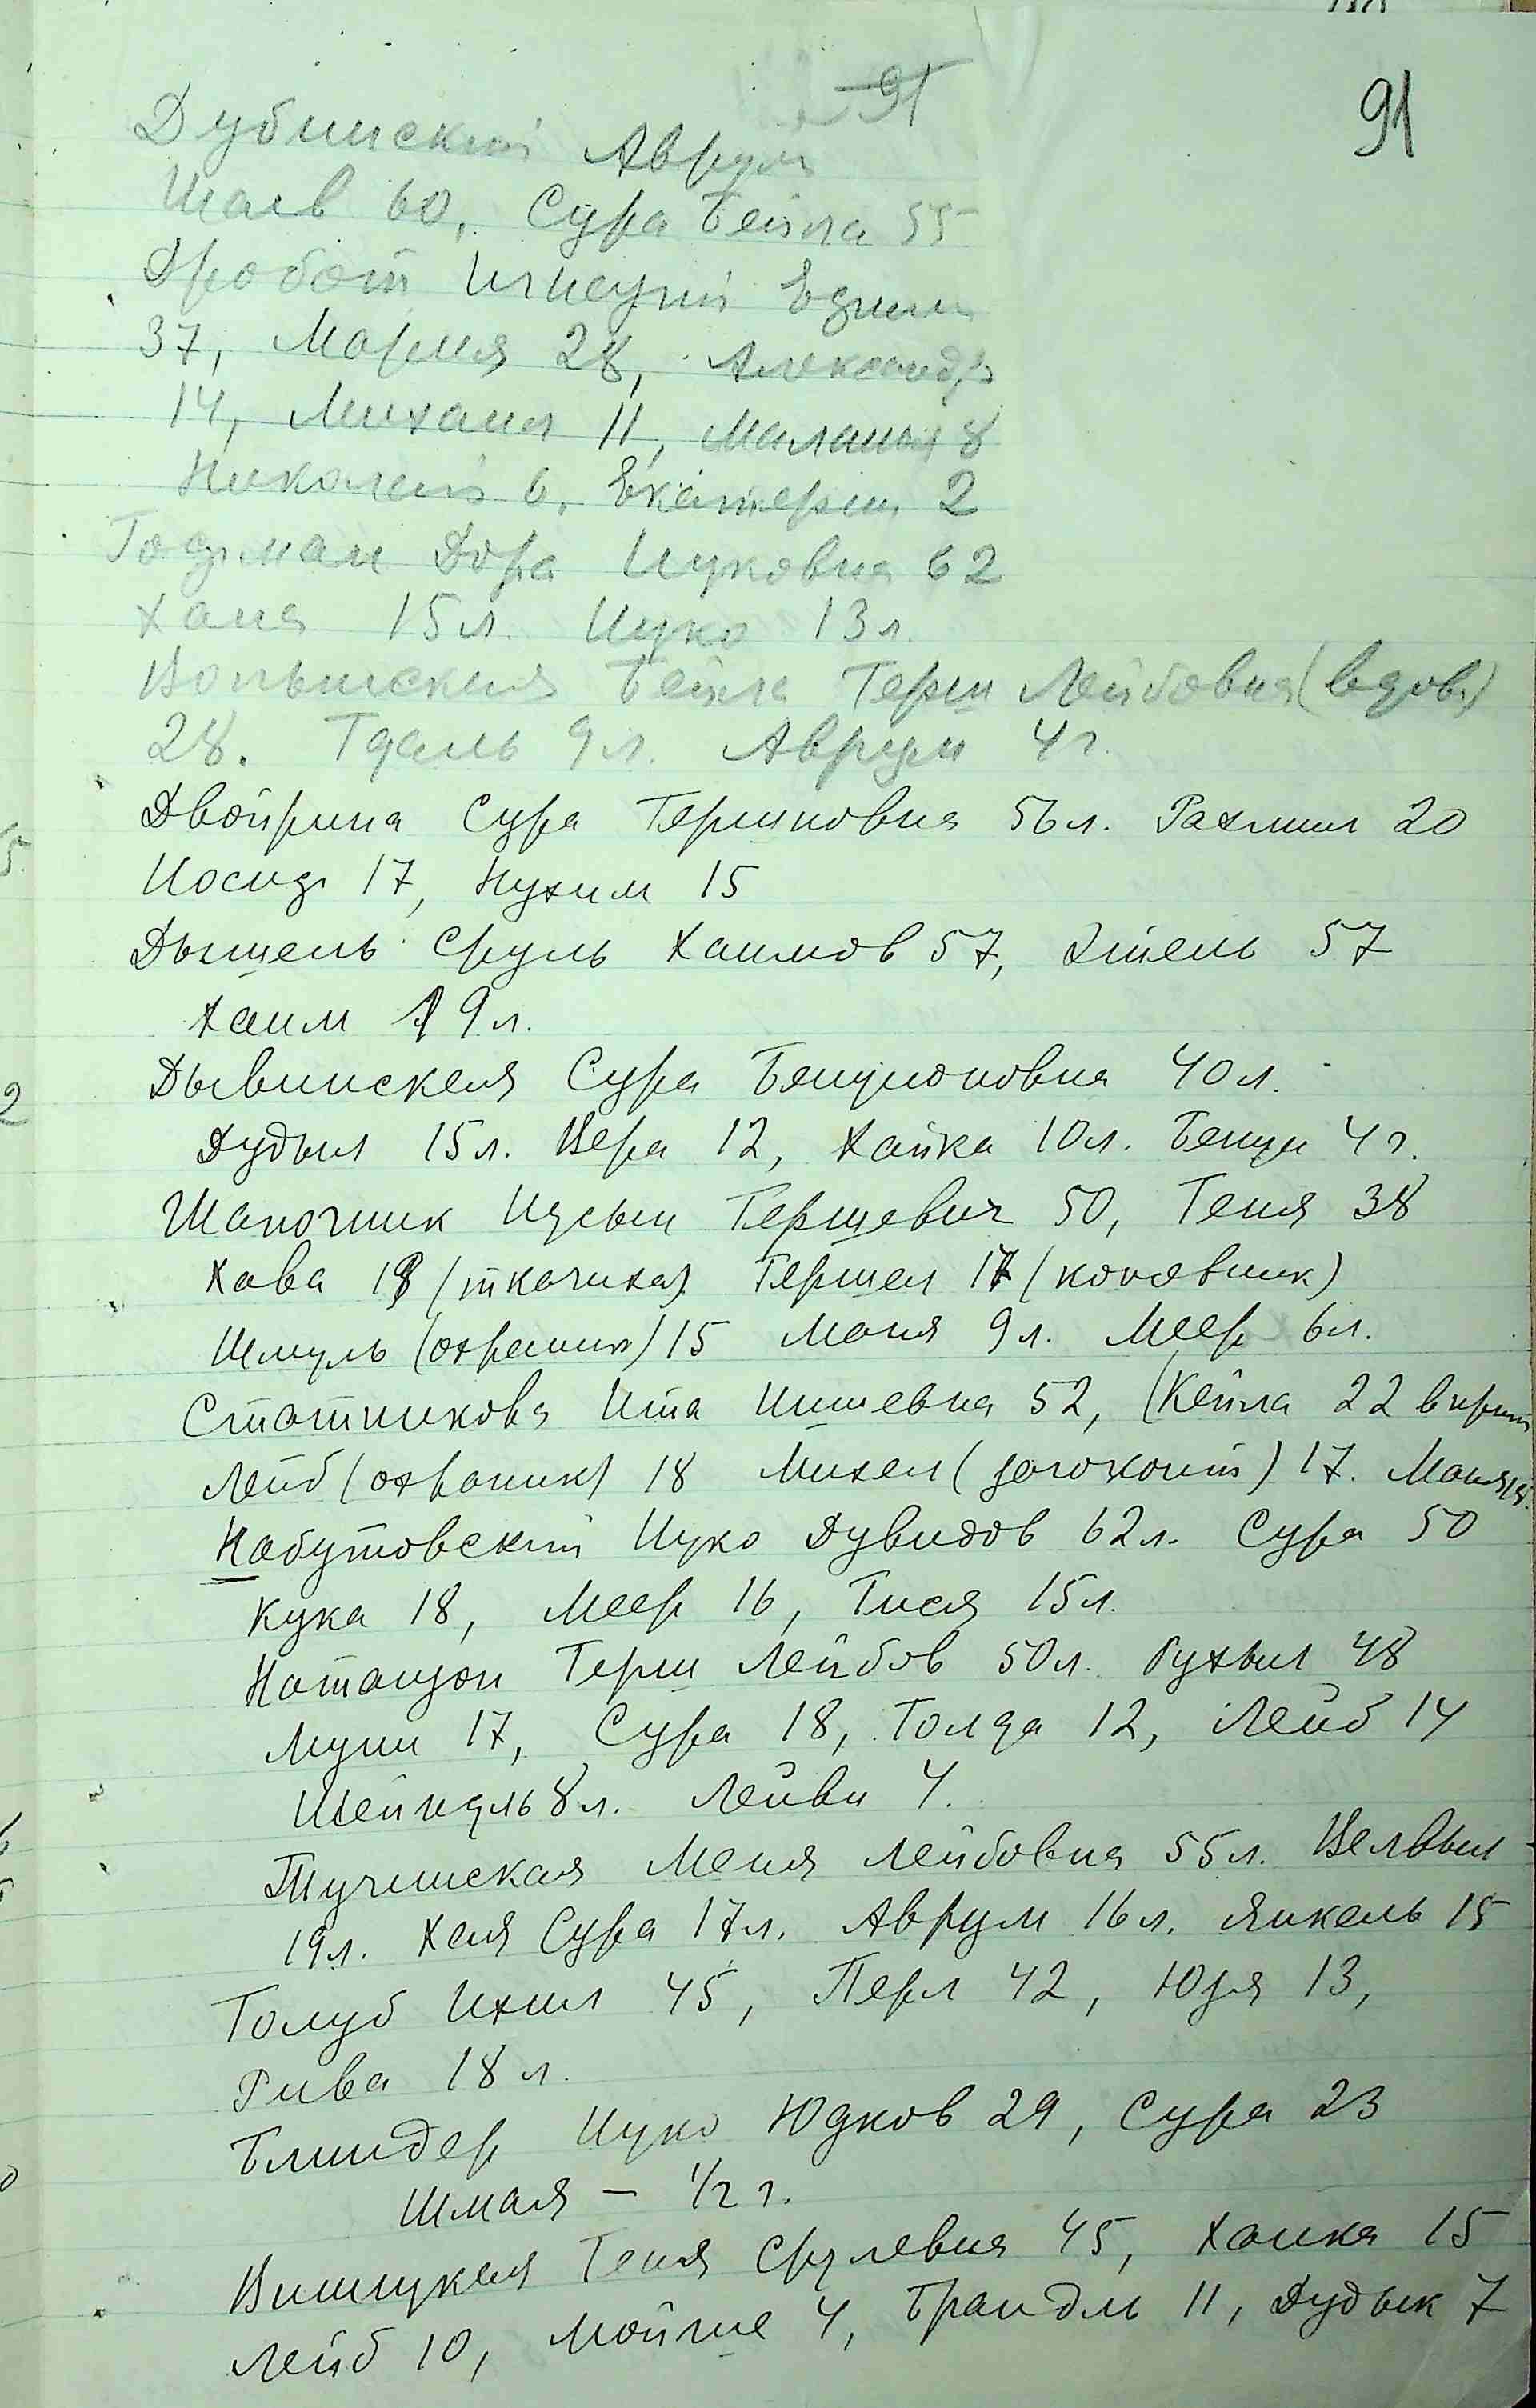 91
91
Дубинский Аврум
Шаев 60, Сура Бейла 55
Дробот
37, Мария 28, Александр
14, Михаил 11, Маланья 8
Николай 6, Екатерин 2
Гозман Дора Ицковна 62
Хана 15 л. Ицко 13 л.
Волынская Бейла Герш Лейбовна (вдова)
28. Гдаль 9 л. Аврум 4 г.
Двойрина Сура Гершковна 56 л. Рахмил 20
Иосиф 17, Нухим 15
Дышель Сруль Хаимов 57, Этель 57
Хаим 19 л.
Дывинская Сура Бенционовна 40 л.
Дудыл 15 л. Вера 12, Хайка 10 л. Бенци 4 г.
Шапочник Нусын Гершевич 50, Геня 38
Хава 18 (ткачиха) Гершел 17 (
Шмуль 15 Моня 9 л. Меер 6 л.
Статникова Ита 52, (Кейла 22
Лейб 18 Михел ( ) 17. Маня
Набутовский Ицко Дувидов 62 л. Сура 50
Кука 18, Меер 16, Гися 15 л.
Натанзон Герш Лейбов 50 л. Рухыл 48
Муни 17, Сура 18, Голда 12, Лейб 14
Шейндль 8 л. Лейви 4.
Тучинская Меня Лейбовна 55 л. Велвыл
19 л. Хая Сура 17 л. Аврум 16 л. Янкель 15
Голуб Ихил 45, Перл 42, Юзя 13,
Рива 18 л.
Блиндер Ицко Юдков 29, Сура 23
Шмая – 1/2 г.
Геня Срулевна 45, Хаика 15
Лейб 10, Мойше 4, Брандль 11, Дудык 7